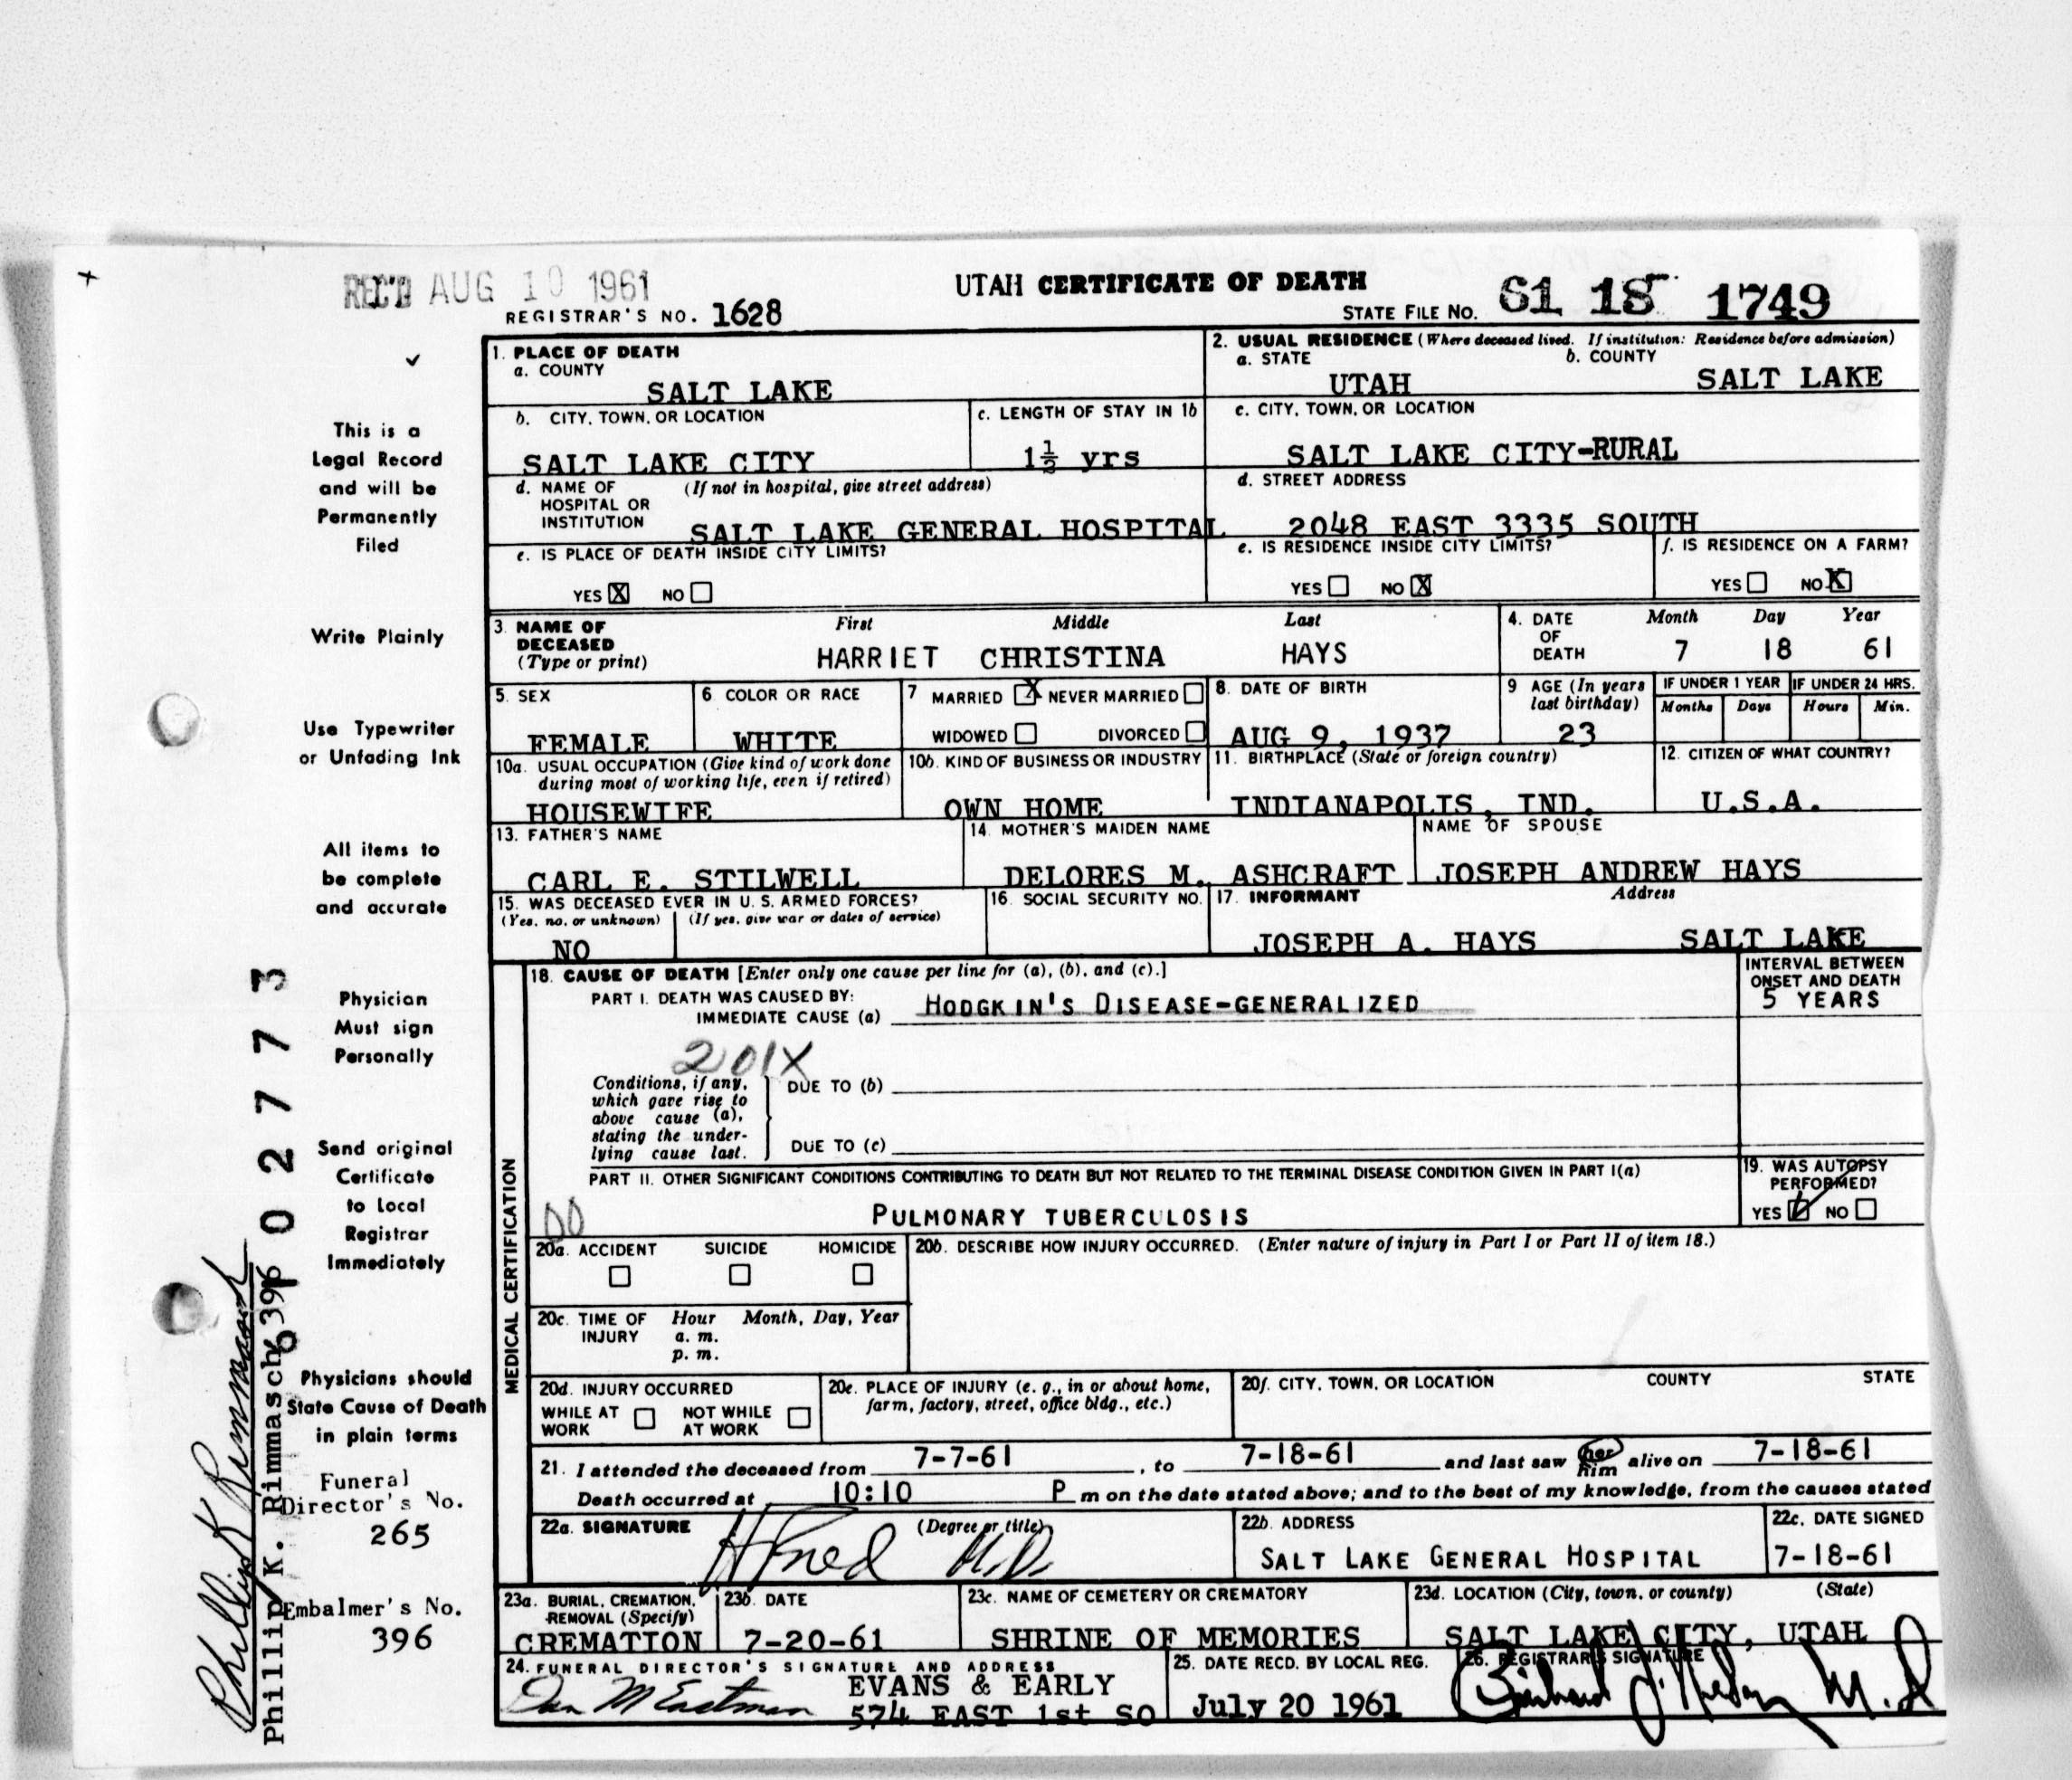 REC'D AUG 10 1961
UTAH CERTIFICATE OF DEATH
REGISTRAR'S NO. 1628
STATE FILE NO. 61 18 1749
This is a
Legal Record
and will be
Permanently
Filed
Write Plainly
Use Typewriter
or Unfading Ink
All items to
be complete
and accurate
Physician
Must sign
Personally
Send original
Certificate
to Local
Registrar
Immediately
Physicians should
State Cause of Death
in plain terms
Funeral
Director's No.
265
Embalmer's No.
396
Phillip K Rimmasch
Phillip K. Rimmasch 396
61 02773
1. PLACE OF DEATH
a. COUNTY
SALT LAKE
2. USUAL RESIDENCE (Where deceased lived. If institution: Residence before admission)
a. STATE b. COUNTY
UTAH SALT LAKE
b. CITY, TOWN, OR LOCATION
SALT LAKE CITY
c. LENGTH OF STAY IN 1b
1½ yrs
c. CITY, TOWN, OR LOCATION
SALT LAKE CITY-RURAL
d. NAME OF (If not in hospital, give street address)
HOSPITAL OR
INSTITUTION SALT LAKE GENERAL HOSPITAL
d. STREET ADDRESS
2048 EAST 3335 SOUTH
e. IS PLACE OF DEATH INSIDE CITY LIMITS?
YES X NO
e. IS RESIDENCE INSIDE CITY LIMITS?
YES NO X
f. IS RESIDENCE ON A FARM?
YES NO X
3. NAME OF First Middle Last
DECEASED
(Type or print) HARRIET CHRISTINA HAYS
4. DATE Month Day Year
OF
DEATH 7 18 61
5. SEX
FEMALE
6. COLOR OR RACE
WHITE
7 MARRIED X NEVER MARRIED
WIDOWED DIVORCED
8. DATE OF BIRTH
AUG 9, 1937
9 AGE (In years
last birthday)
23
IF UNDER 1 YEAR IF UNDER 24 HRS.
Months Days Hours Min.
10a. USUAL OCCUPATION (Give kind of work done
during most of working life, even if retired)
HOUSEWIFE
10b. KIND OF BUSINESS OR INDUSTRY
OWN HOME
11. BIRTHPLACE (State or foreign country)
INDIANAPOLIS, IND.
12. CITIZEN OF WHAT COUNTRY?
U.S.A.
13. FATHER'S NAME
CARL E. STILWELL
14. MOTHER'S MAIDEN NAME
DELORES M. ASHCRAFT
NAME OF SPOUSE
JOSEPH ANDREW HAYS
15. WAS DECEASED EVER IN U. S. ARMED FORCES?
(Yes, no, or unknown) (If yes, give war or dates of service)
NO
16. SOCIAL SECURITY NO.
17. INFORMANT Address
JOSEPH A. HAYS SALT LAKE
MEDICAL CERTIFICATION
18. CAUSE OF DEATH [Enter only one cause per line for (a), (b), and (c).]
INTERVAL BETWEEN
ONSET AND DEATH
PART I. DEATH WAS CAUSED BY:
IMMEDIATE CAUSE (a) HODGKIN'S DISEASE-GENERALIZED
5 YEARS
201X
Conditions, if any,
which gave rise to
above cause (a),
stating the under-
lying cause last.
DUE TO (b)
DUE TO (c)
PART II. OTHER SIGNIFICANT CONDITIONS CONTRIBUTING TO DEATH BUT NOT RELATED TO THE TERMINAL DISEASE CONDITION GIVEN IN PART I(a)
00
PULMONARY TUBERCULOSIS
19. WAS AUTOPSY
PERFORMED?
YES NO
20a. ACCIDENT SUICIDE HOMICIDE
20b. DESCRIBE HOW INJURY OCCURRED. (Enter nature of injury in Part I or Part II of item 18.)
20c. TIME OF Hour Month, Day, Year
INJURY a. m.
p. m.
20d. INJURY OCCURRED
WHILE AT NOT WHILE
WORK AT WORK
20e. PLACE OF INJURY (e. g., in or about home,
farm, factory, street, office bldg., etc.)
20f. CITY, TOWN, OR LOCATION COUNTY STATE
21. I attended the deceased from 7-7-61, to 7-18-61 and last saw her him alive on 7-18-61
Death occurred at 10:10 P m on the date stated above; and to the best of my knowledge, from the causes stated
22a. SIGNATURE (Degree or title)
M.D.
22b. ADDRESS
SALT LAKE GENERAL HOSPITAL
22c. DATE SIGNED
7-18-61
23a. BURIAL, CREMATION,
REMOVAL (Specify)
CREMATION
23b. DATE
7-20-61
23c. NAME OF CEMETERY OR CREMATORY
SHRINE OF MEMORIES
23d. LOCATION (City, town, or county) (State)
SALT LAKE CITY, UTAH
24. FUNERAL DIRECTOR'S SIGNATURE AND ADDRESS
Dan M Eastman EVANS & EARLY
574 EAST 1st SO
25. DATE RECD. BY LOCAL REG.
July 20 1961
26. REGISTRAR'S SIGNATURE
M.D